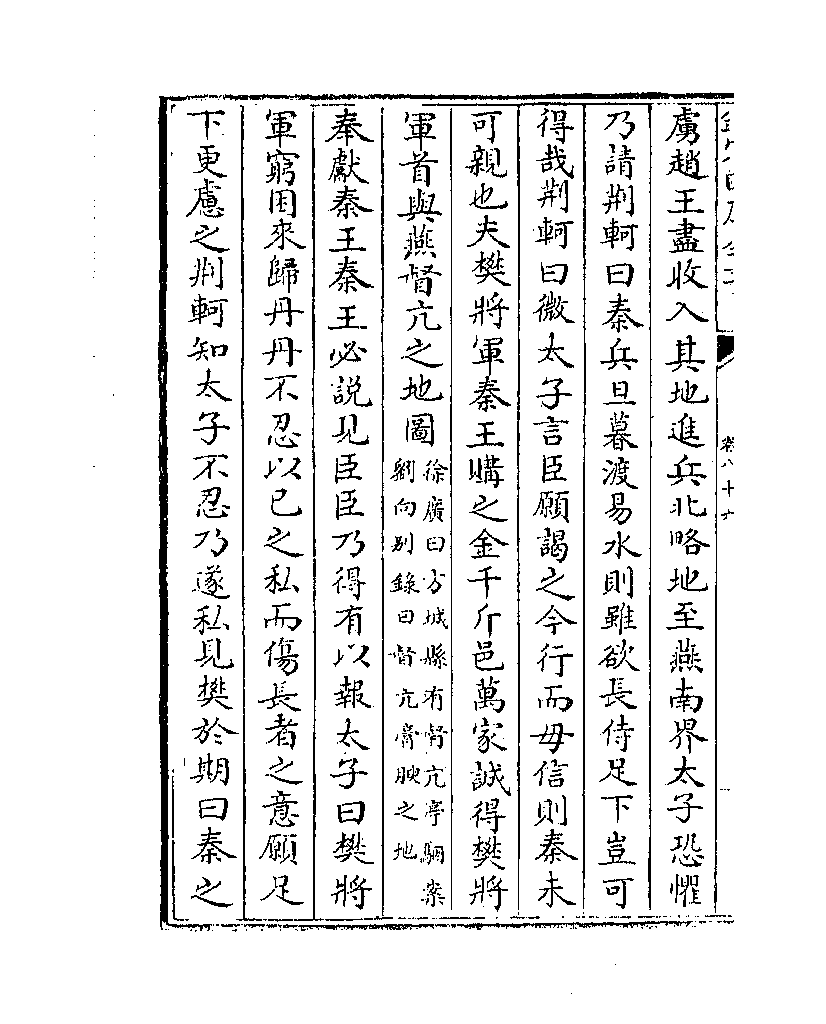 卷八十六
虜趙王盡收入其地進兵北略地至燕南界太子恐懼
乃請荆軻曰秦兵旦暮渡易水則雖欲長侍足下豈可
得哉荆軻曰微太子言臣願謁之今行而毋信則秦未
可親也夫樊將軍秦王購之金千斤邑萬家誠得樊將
軍首與燕督亢之地圖
徐廣曰方城縣有督亢亭駰案
劉向别錄曰督亢膏腴之地
奉獻秦王秦王必說見臣臣乃得有以報太子曰樊將
軍窮困來歸丹丹不忍以已之私而傷長者之意願足
下更慮之荆軻知太子不忍乃遂私見樊於期曰秦之